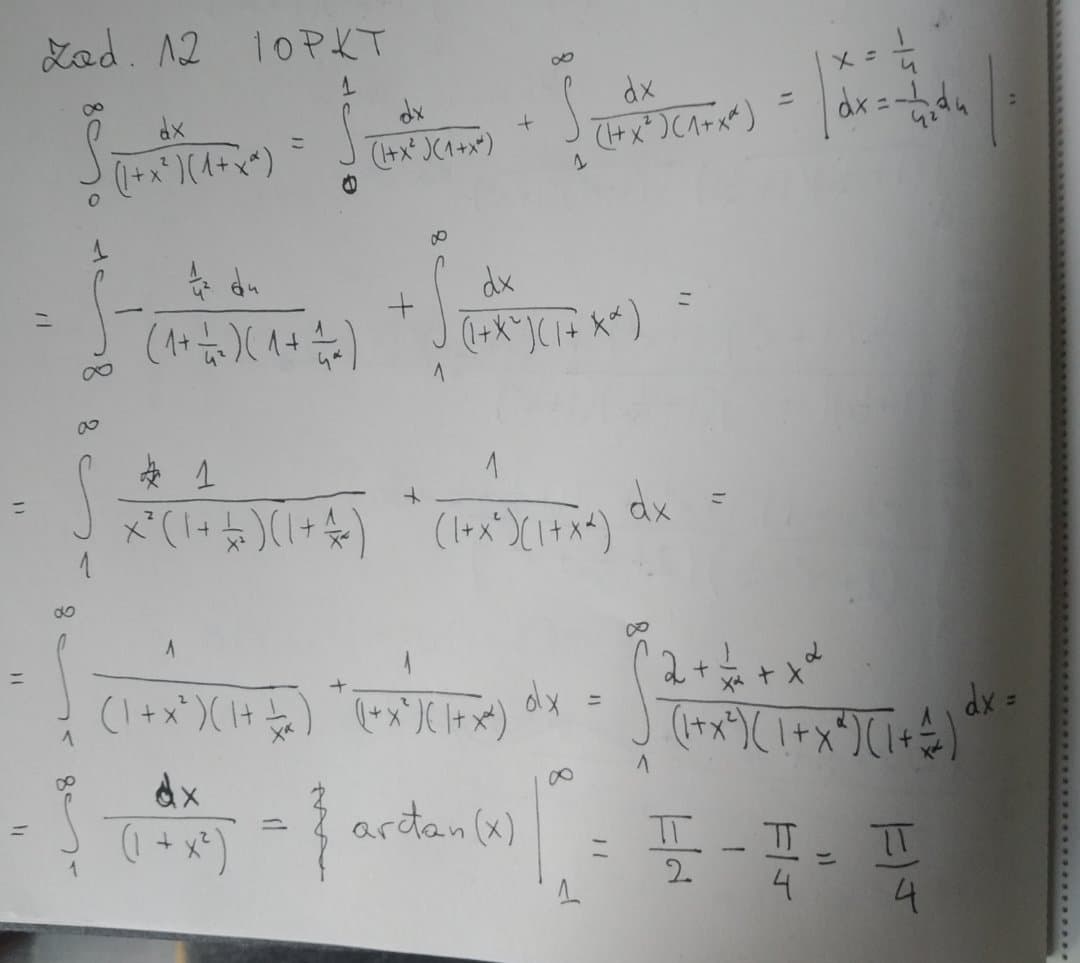 Zad. 12 10PKT
∫_0^∞ dx/((1+x²)(1+x^α)) = ∫_0^1 dx/((1+x²)(1+x^α)) + ∫_1^∞ dx/((1+x²)(1+x^α)) = | x = 1/u, dx = -1/u² du | =
= ∫_∞^1 - (1/u² du)/((1+1/u²)(1+1/u^α)) + ∫_1^∞ dx/((1+x²)(1+x^α)) =
= ∫_1^∞ 1/(x²(1+1/x²)(1+1/x^α)) + 1/((1+x²)(1+x^α)) dx =
= ∫_1^∞ 1/((1+x²)(1+1/x^α)) + 1/((1+x²)(1+x^α)) dx = ∫_1^∞ (2+1/x^α+x^α)/((1+x²)(1+x^α)(1+1/x^α)) dx =
= ∫_1^∞ dx/(1+x²) = arctan(x) |_1^∞ = π/2 - π/4 = π/4